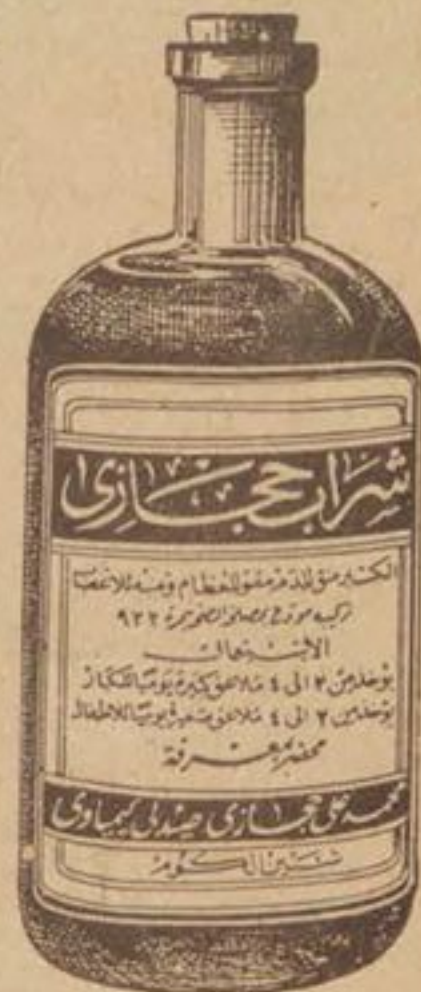 شراب حجازى
منق للدم مقو للعظام ومنبه للاعصاب
٩٢٢
الاستعمال
يؤخذ من ٢ الى ٤ ملاعق كبيرة يوميا للكبار
يؤخذ من ٢ الى ٤ ملاعق صغيرة يوميا للاطفال
محضر بمعرفة
محمد على حجازى صيدلى كيماوى
شبين الكوم